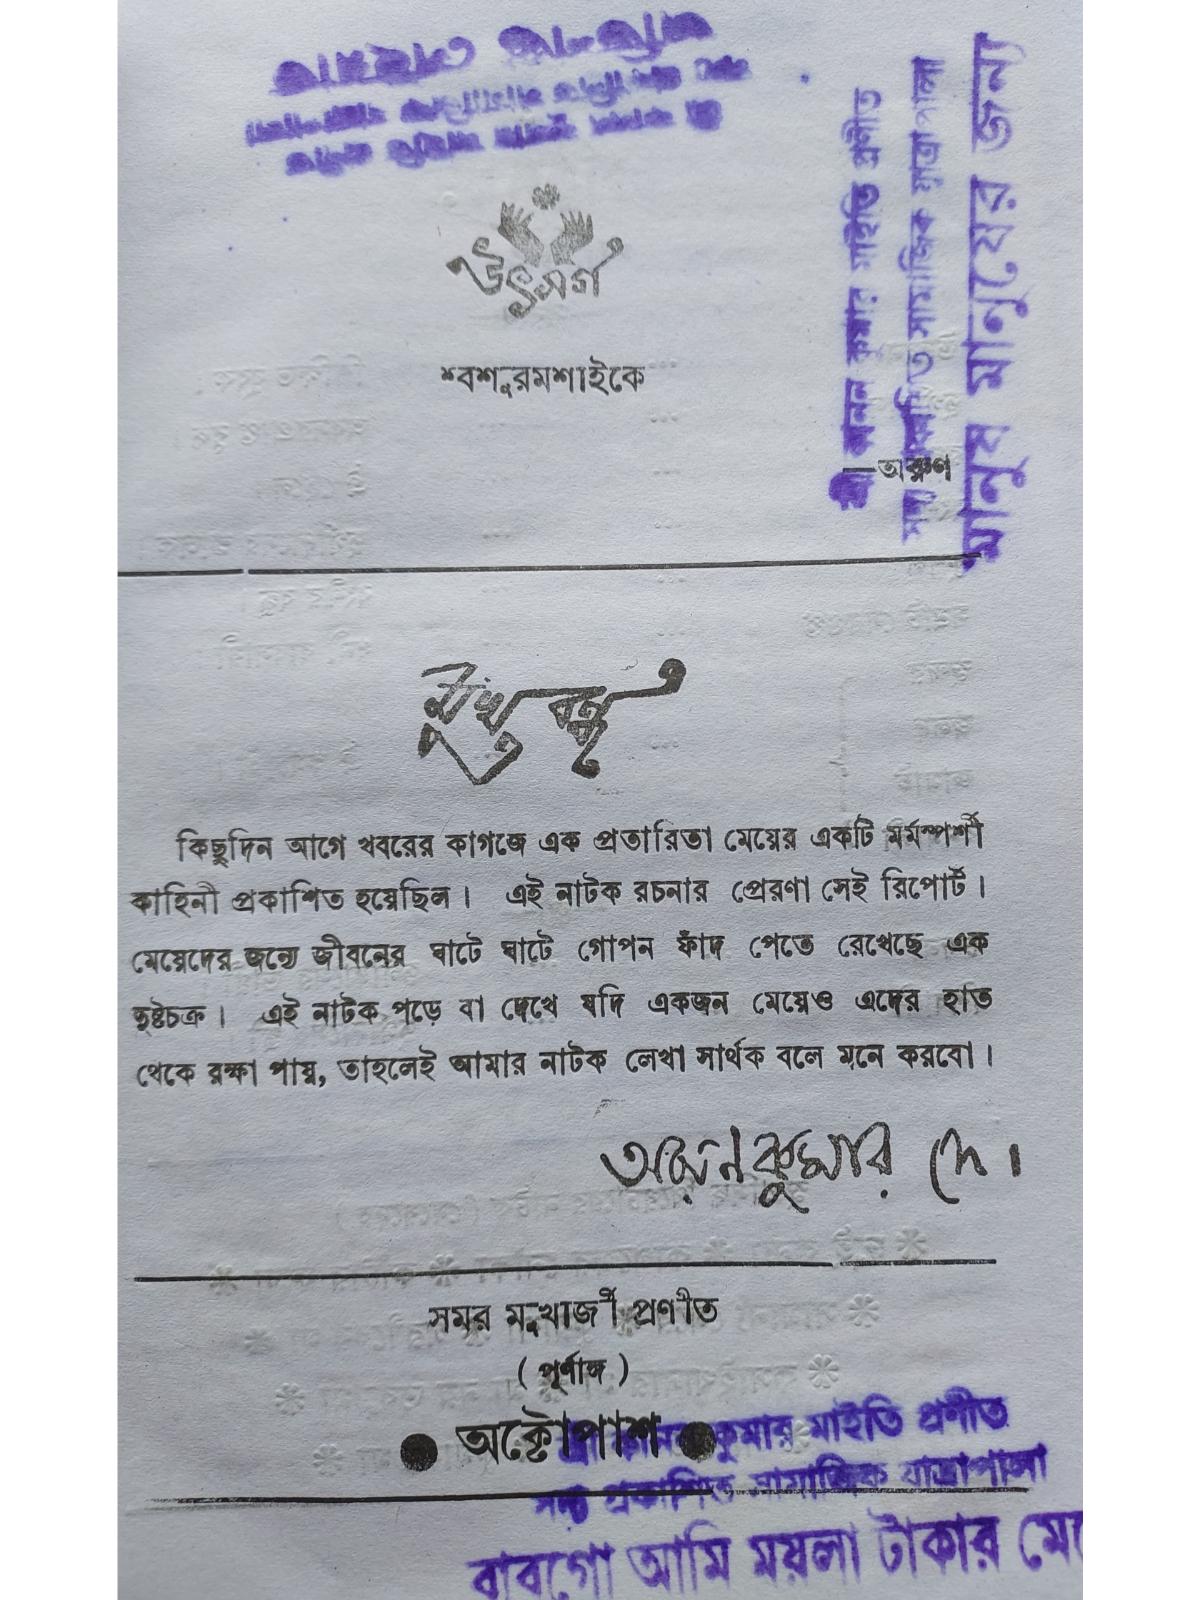 উৎসর্গ
শ্বশুরমশাইকে
—অরুণ
মুখবন্ধ
কিছুদিন আগে খবরের কাগজে এক প্রতারিতা মেয়ের একটি মর্মস্পর্শী
কাহিনী প্রকাশিত হয়েছিল। এই নাটক রচনার প্রেরণা সেই রিপোর্ট।
মেয়েদের জন্যে জীবনের ঘাটে ঘাটে গোপন ফাঁদ পেতে রেখেছে এক
দুষ্টচক্র। এই নাটক পড়ে বা দেখে যদি একজন মেয়েও এদের হাত
থেকে রক্ষা পায়, তাহলেই আমার নাটক লেখা সার্থক বলে মনে করবো।
অরুণকুমার দে।
সমর মুখার্জী প্রণীত
(পূর্ণাঙ্গ)
● অক্টোপাশ ●
কুমার মাইতি প্রণীত
সদ্য প্রকাশিত সামাজিক যাত্রাপালা
বাবাগো আমি ময়লা টাকার মেয়ে
শ্রী কানন কুমার মাইতি প্রণীত
সদ্য প্রকাশিত সামাজিক যাত্রাপালা
মানুষ মানুষের জন্য